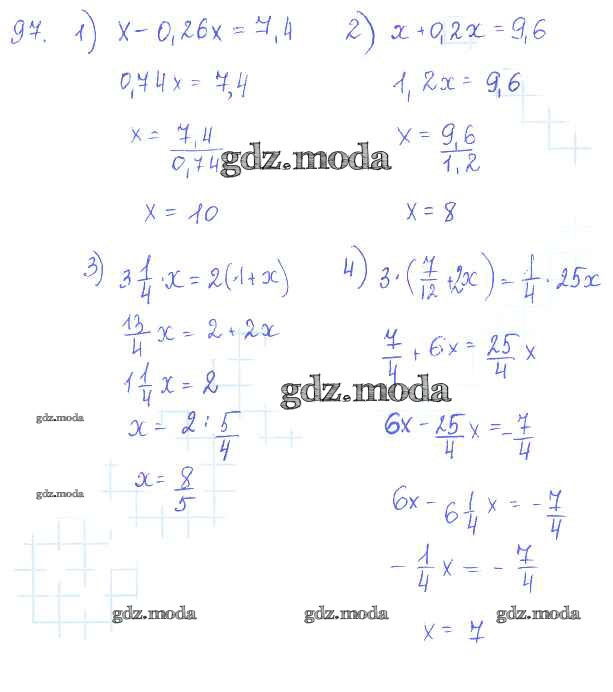 97. 1) x - 0,26x = 7,4
0,74x = 7,4
x = 7,4/0,74
x = 10
2) x + 0,2x = 9,6
1,2x = 9,6
x = 9,6/1,2
x = 8
gdz.moda
3) 3 1/4 · x = 2(1 + x)
13/4 x = 2 + 2x
1 1/4 x = 2
x = 2 : 5/4
x = 8/5
4) 3 · (7/12 + 2x) = 1/4 · 25x
7/4 + 6x = 25/4 x
6x - 25/4 x = - 7/4
6x - 6 1/4 x = - 7/4
- 1/4 x = - 7/4
x = 7
gdz.moda
gdz.moda
gdz.moda
gdz.moda gdz.moda gdz.moda